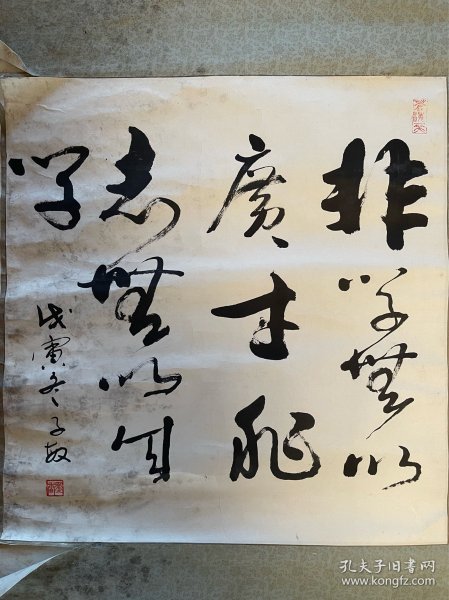 非学無以
廣才非
志無以成
学
戊寅冬子
孔夫子旧书网
www.kongfz.com